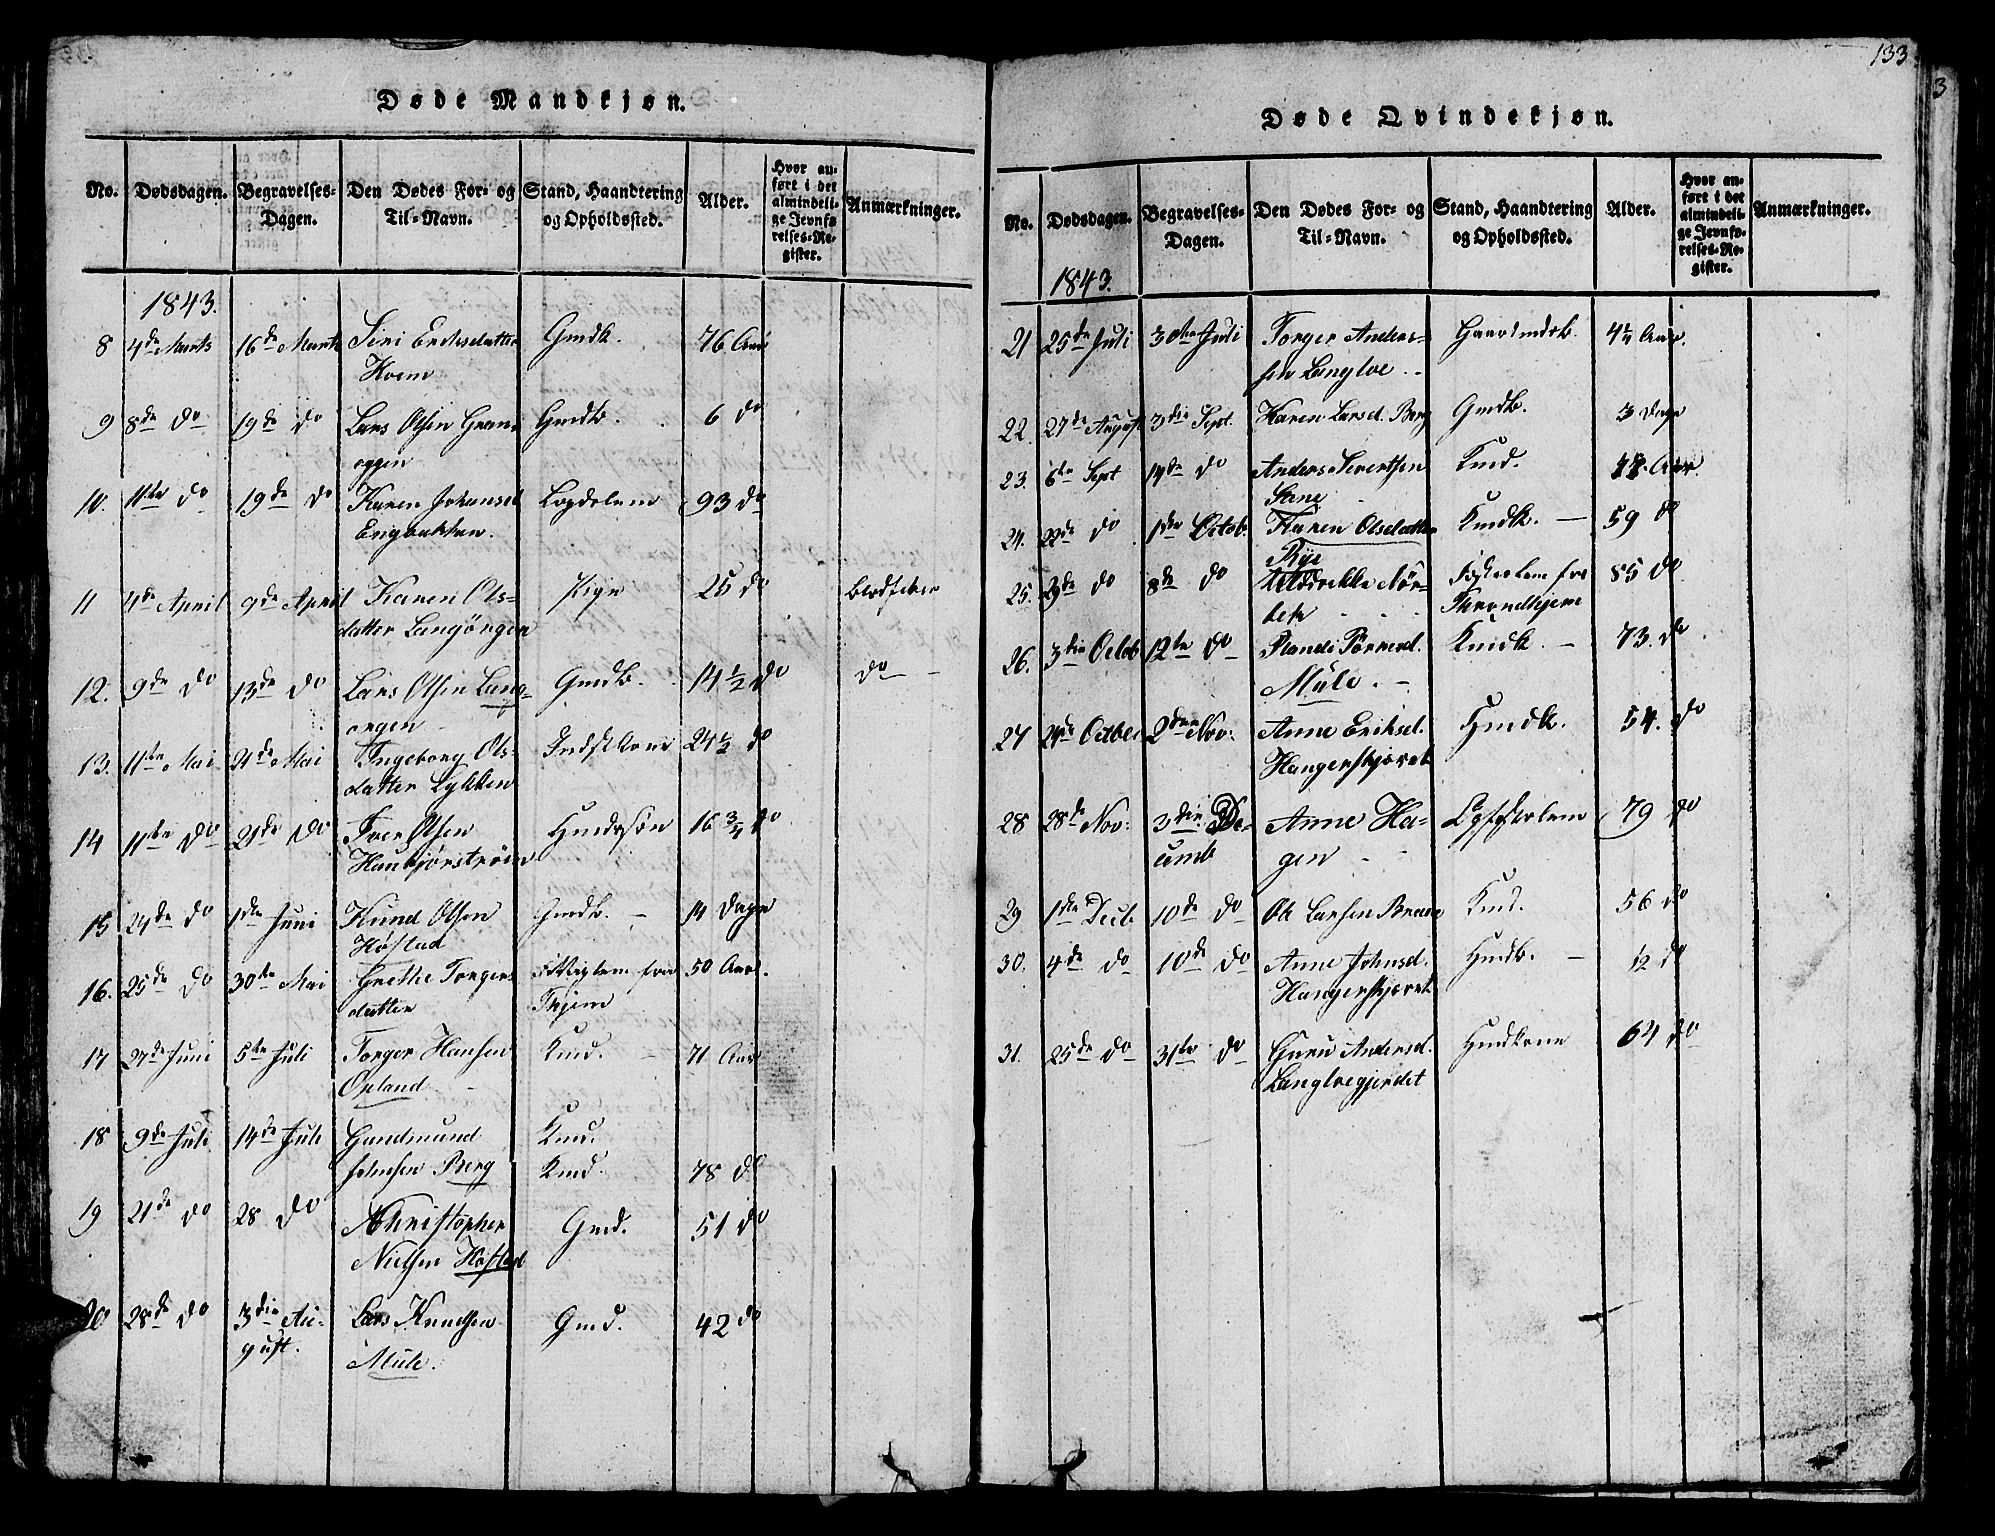 133
3
Døde Mandkjøn.
No. Dødsdagen. Begravelses-Dagen. Den Dødes For- og Til-Navn. Stand, Haandtering og Opholdssted. Alder. Hvor anført i det almindelige Jevnførelses-Register. Anmærkninger.
1843.
8 4de Marts 16de Marts Siri Eriksdatter Gmdk. 76 Aar
Hoem
9 8de do 19de do Lars Olsen Gran- Gmdb. 6 do
oggen
10. 11te do 19de do Karen Johansd Lægdslem 93 do
Engbakken.
11 4de April 9de April Karen Ols- Pige 25 do
datter Langørgen
12. 9de do 13de do Lars Olsen Lang- Gmdb. 14 1/2 do do
ørgen
13. 11te Mai 21de Mai Ingeborg Ols- 24 1/2 do
datter Lykken
14 11te do 21de do Iver Olsen Hmdssøn 16 3/4 do
Haukjørstrøen
15 24de do 1ste Juni Knud Olsen Gmdb. 14 Dage
Høstad
16. 25de do 30te Mai Grethe Torgers fra 50 Aar.
datter Thjem
17 27de Juni 5te Juli Torger Hansen Kmd. 71 Aar
Opland
18 9de Juli 14de Juli Gundmund Kmd.
Johnsen Berg Kmd. 78 do
19 21de do 28 do Christopher Gmd. 51 do
Nielsen Høstad
20 28de do 3die Au- Lars Knudsen Gmd. 42 do
gust. Mule.
Døde Qvindekjøn.
No. Dødsdagen. Begravelses-Dagen. Den Dødes For- og Til-Navn. Stand, Haandtering og Opholdssted. Alder. Hvor anført i det almindelige Jevnførelses-Register. Anmærkninger.
1843.
21 25de Juli 30te Juli Torger Anders- Aar.
sen Langloe
22. 27de August 3die Sept. Karen Larsd. Berg Gmdb. 3 Dage
23. 6te Sept 14de do Anders Sivertsen Kmd. Aar
24. 22de do 1ste Octob. Karen Olsdatter Kmdk. 59 do
Rye
25. 29de do 8de do Nør- fra 85 do
bek Throndhjem
26. 3die Octob 12te do Randi Kmdk. 73. do
Mule.
27 24de Octbr. 2den Nov: Anne Eriksd. Hmdk. 54. do
Hangerskjæret
28 28de Nov: 3die De- Anne Ha- 79 do
cemb gen
29 1ste Decb 10de do Ole Larsen Kmd. 56 do
30. 4de do 10de do Anne Johnsd. Hmdb. 12 do
Hangerskjæret
31. 25de do 31te do Guru Andersd. Hmdkone 64 do
Langloegjerdet